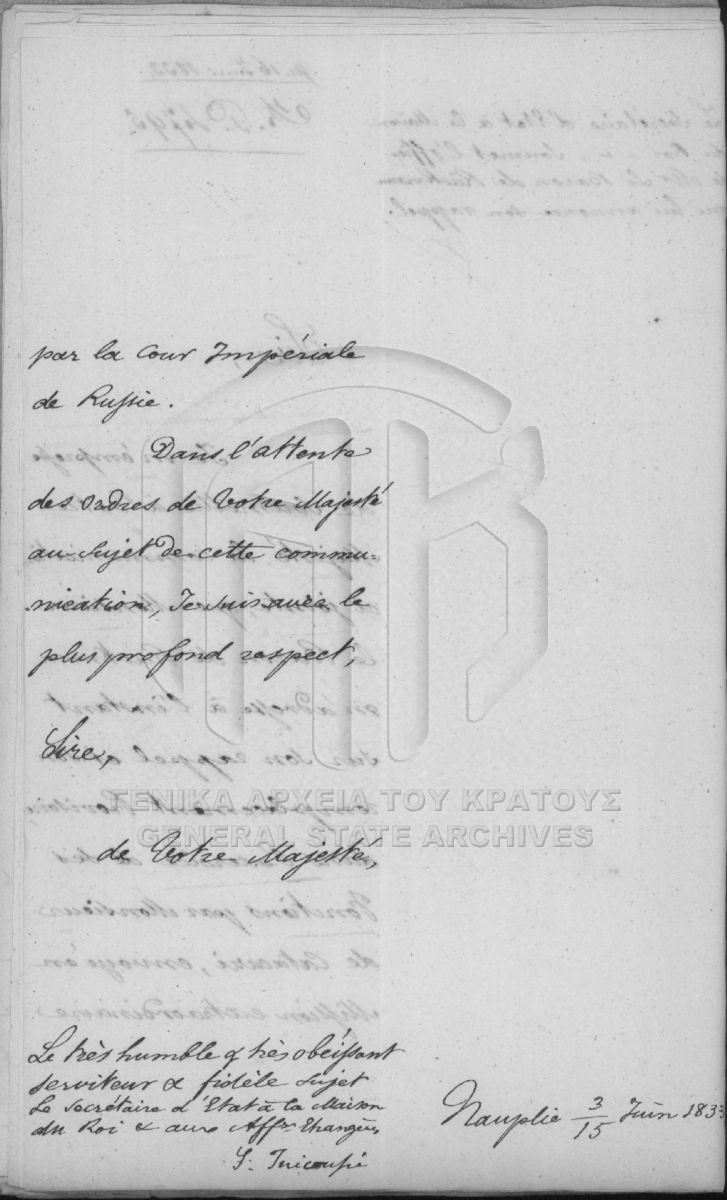 par la Cour Impériale
de Russie.
Dans l'attente
des ordres de Votre Majesté
au sujet de cette commu-
nication, Je suis avec le
plus profond respect,
Sire,
ΓΕΝΙΚΑ ΑΡΧΕΙΑ ΤΟΥ ΚΡΑΤΟΥΣ
GENERAL STATE ARCHIVES
de Votre Majesté,
Le très humble & très obéissant
serviteur & fidèle sujet
Le Secrétaire d'Etat à la Maison
du Roi & aux Aff.res Etrangères
S. Tricoupi
Nauplie 3/15 Juin 1833